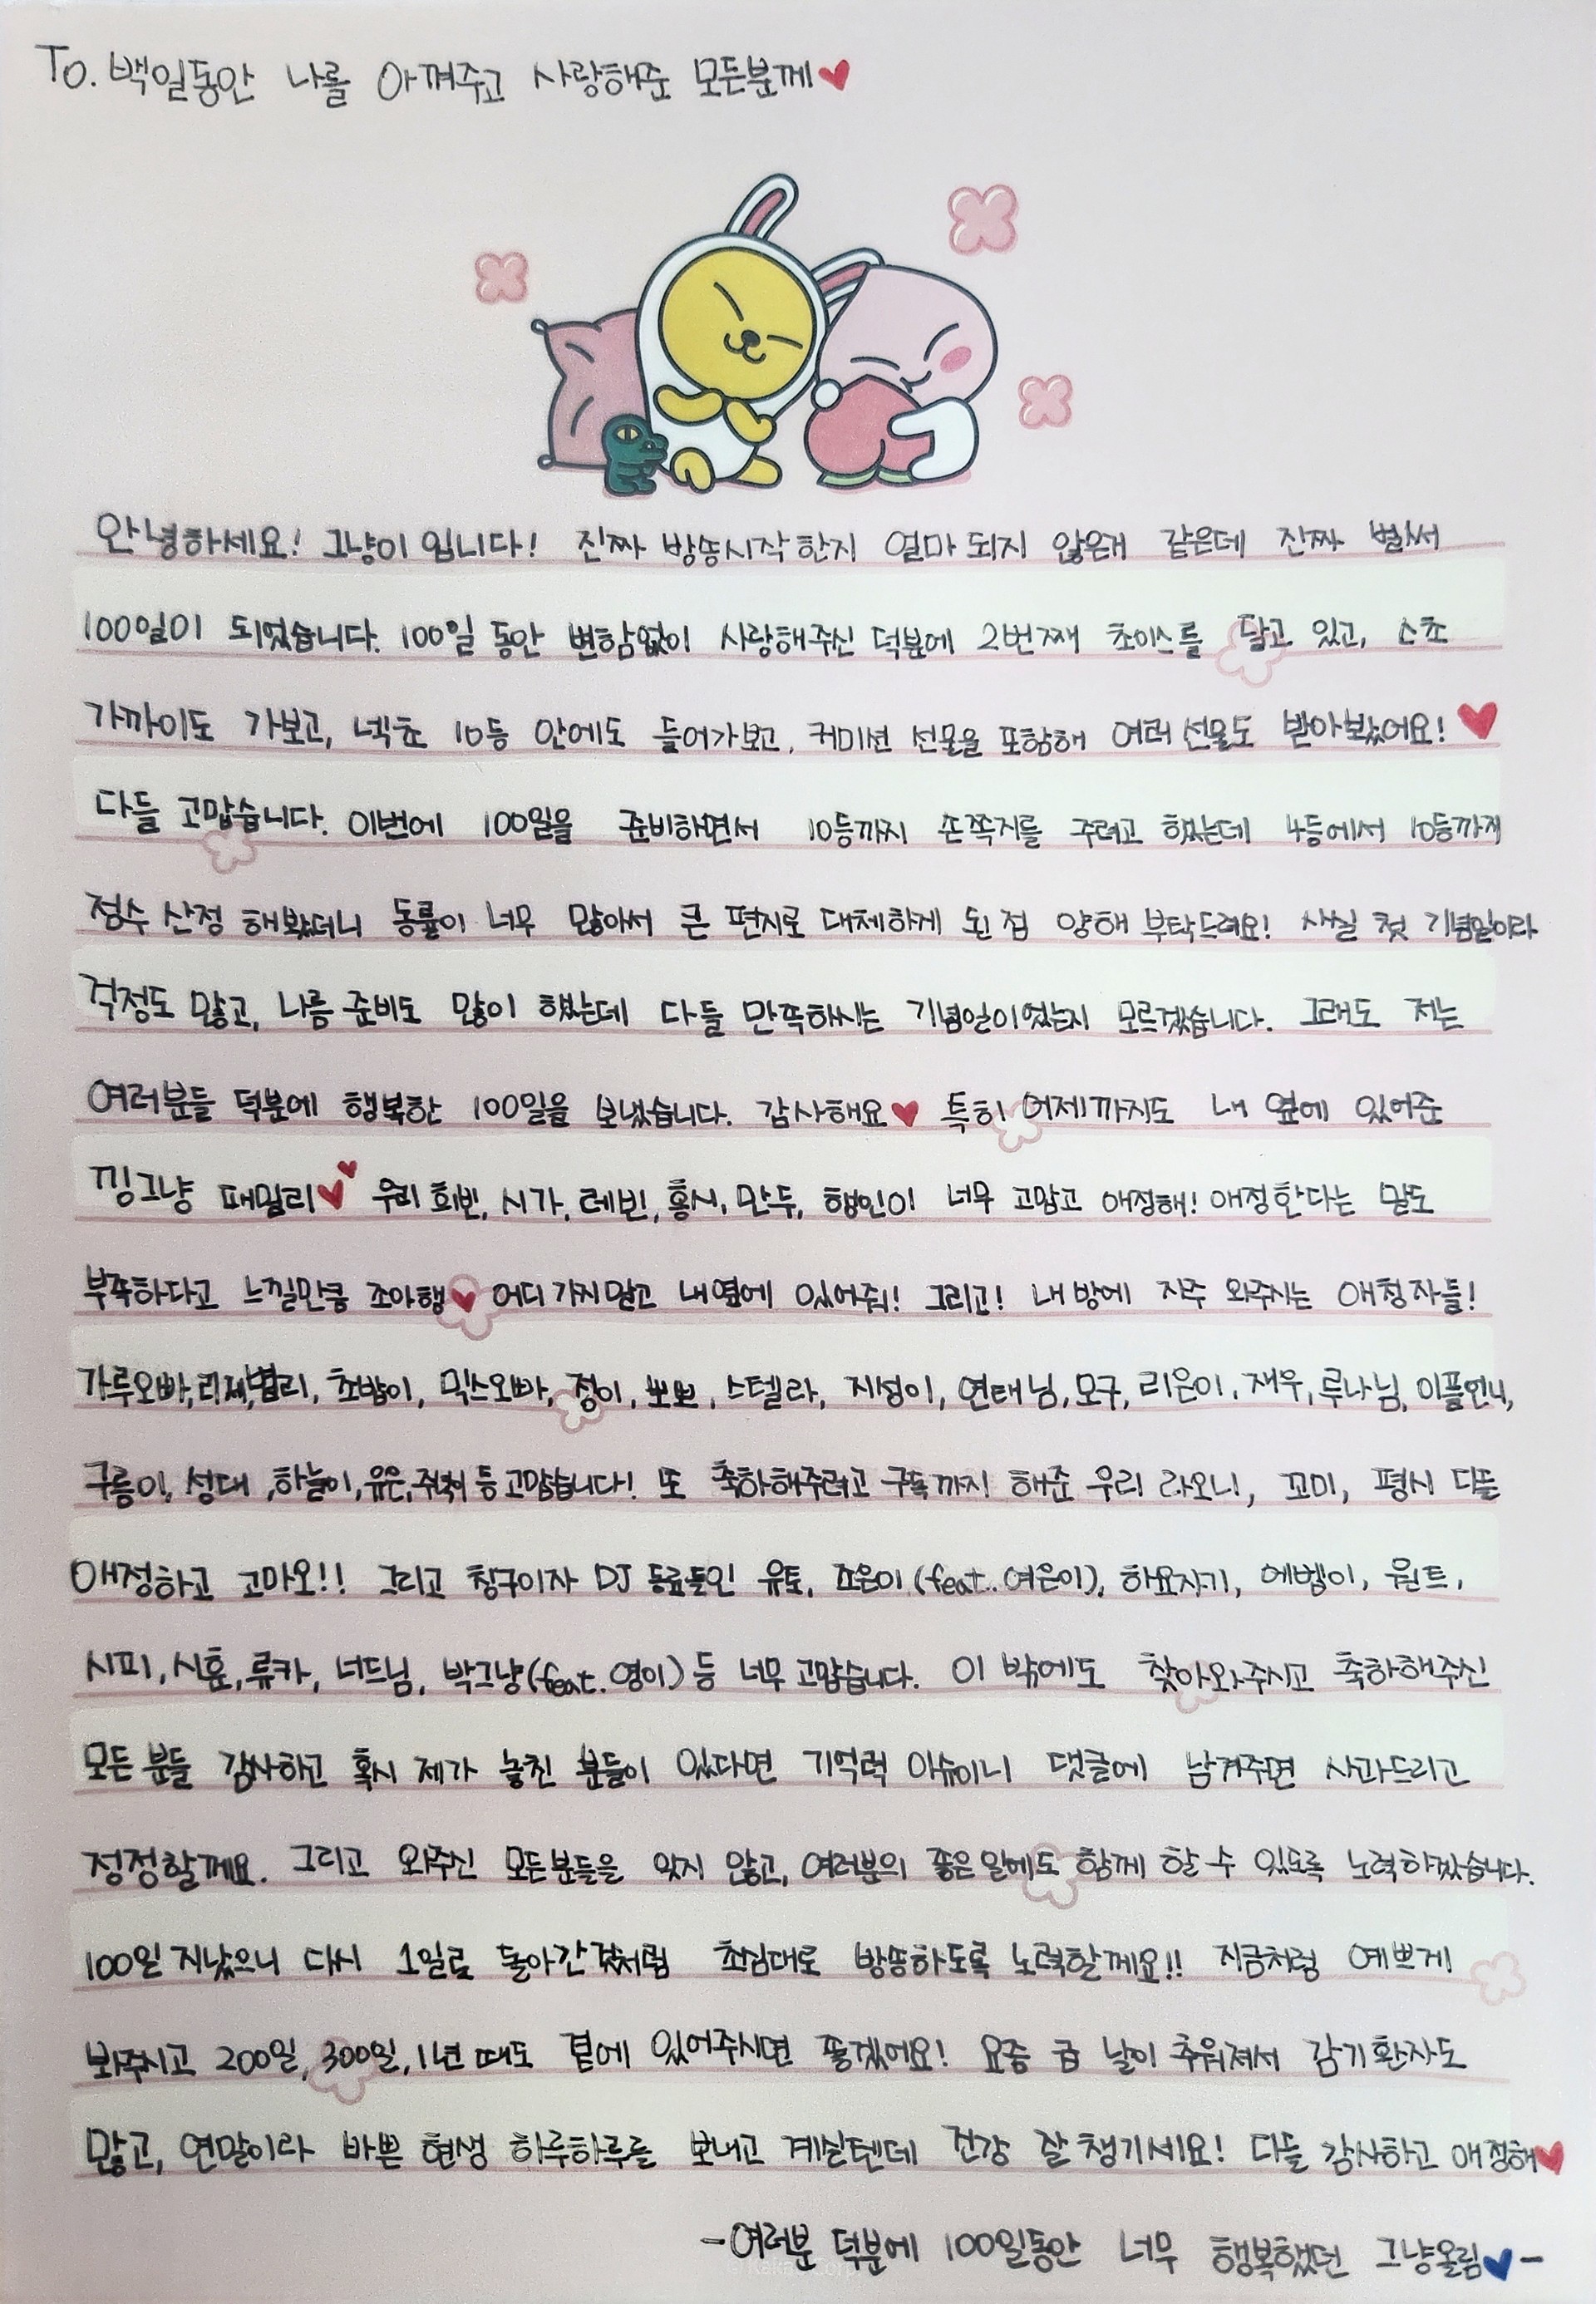 To. 백일동안 나를 아껴주고 사랑해준 모든분께♥
안녕하세요! 그냥이 입니다! 진짜 방송시작한지 얼마 되지 않은게 같은데 진짜 벌써
100일이 되었습니다. 100일 동안 변함없이 사랑해주신 덕분에 2번째 초이스를 달고 있고, 스쵸
가까이도 가보고, 넥쵸 10등 안에도 들어가보고, 커미션 선물을 포함해 여러 선물도 받아봤어요!♥
다들 고맙습니다. 이번에 100일을 준비하면서 10등까지 손쪽지를 주려고 했는데 4등에서 10등까지
점수 산정 해봤더니 동률이 너무 많아서 큰 편지로 대체하게 된 점 양해 부탁드려요! 사실 첫 기념일이라
걱정도 많고, 나름 준비도 많이 했는데 다들 만족하시는 기념일이었는지 모르겠습니다. 그래도 저는
여러분들 덕분에 행복한 100일을 보냈습니다. 감사해요♥ 특히 어제까지도 내 옆에 있어준
낑그냥 패밀리♥♥ 우리 회빈, 시가, 레빈, 홍시, 만두, 행인이 너무 고맙고 애정해! 애정한다는 말도
부족하다고 느낄만큼 조아행♥ 어디 가지말고 내옆에 있어줘! 그리고! 내 방에 자주 와주시는 애청자들!
가루오빠, 리제, 별리, 초밥이, 믹스오빠, 정이, 뽀뽀, 스텔라, 지성이, 연태님, 모구, 리온이, 재우, 루나님, 이플언니,
구름이, 성대, 하늘이, 유은, 등 고맙습니다! 또 축하해주려고 구독까지 해준 우리 라오니, 꼬미, 평시 다들
애정하고 고마오!! 그리고 칭구이자 DJ 동료들인 유토, 쪼은이(feat. 여은이), 하요자기, 에벨이, 원트,
시피, 시효, 류카, 너드님, 박그냥(feat. 영이) 등 너무 고맙습니다. 이 밖에도 찾아와주시고 축하해주신
모든 분들 감사하고 혹시 제가 놓친 분들이 있다면 기억력 이슈이니 댓글에 남겨주면 사과드리고
정정할께요. 그리고 와주신 모든분들을 잊지 않고, 여러분의 좋은 일에도 함께 할 수 있도록 노력하겠습니다.
100일 지났으니 다시 1일로 돌아간 것처럼 초심대로 방송하도록 노력할께요!! 지금처럼 예쁘게
봐주시고 200일, 300일, 1년 때도 곁에 있어주시면 좋겠어요! 요즘 급 날이 추워져서 감기환자도
많고, 연말이라 바쁜 현생 하루하루를 보내고 계실텐데 건강 잘 챙기세요! 다들 감사하고 애정해♥
-여러분 덕분에 100일동안 너무 행복했던 그냥올림♥-